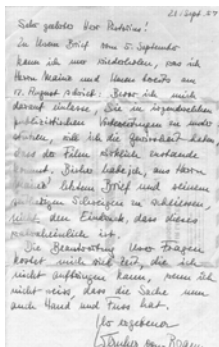 21/Sept. 57
Sehr geehrter Herr
In Ihrem Brief vom 5. September
kann ich nur wiederholen, was ich
Herrn Mainz und Ihnen bereits am
12. August schrieb: Bevor ich mich
darauf einlasse, Sie in irgendwelchen
publizistischen zu unter-
stützen, will ich die Gewissheit haben,
dass der Film wirklich zustande
kommt. Bisher habe ich, aus Herrn
Mainz' letztem Brief und seinem
Schweigen zu schliessen,
nicht den Eindruck, dass dieses
wahrscheinlich ist.
Die Beantwortung Ihrer Fragen
kostet mich viel Zeit, die ich
nicht aufbringen kann, wenn ich
nicht weiss, dass die Sache nun
auch Hand und Fuss hat.
Ihr ergebener
Wernher von Braun